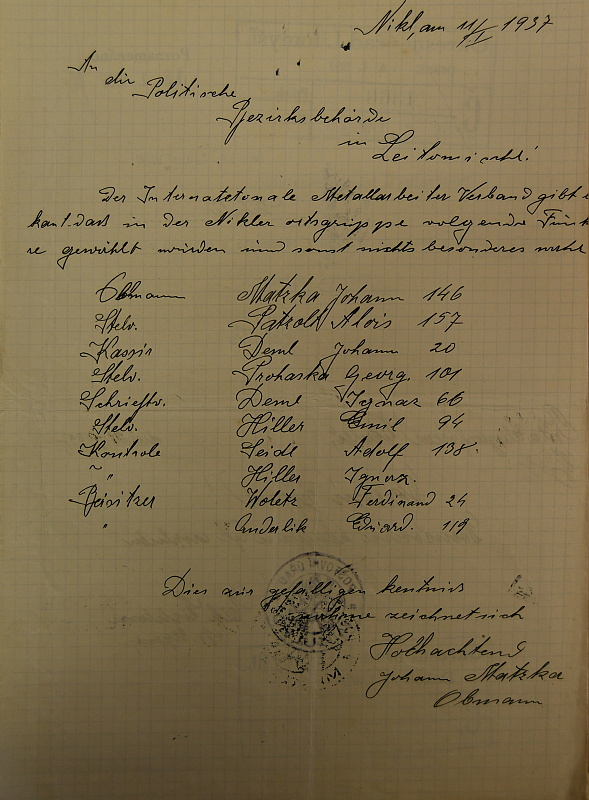 Nikl, am 11/I 1937
An
die
Politische
Bezirksbehörde
in
Leitomischl!
Der Internatztonale Metallarbeiter Verband gibt
kant dass in der Nikler ortsgrippe volgende Funk
re gewählt würden und sonst nichts besonderes
Obmann Matzka Johann 146
Stelv. Pátzolt Alois 157
Kassir Deml Johann 20
Stelv. Prohaska Georg. 101
Schrieftv. Deml Ignaz 66
Stelv. Hiller Emil 94
Kontrole Seidl Adolf 138.
~ " Hiller Ignaz.
Beisitzer Woletz Ferdinand 24
" Anderlik Eduard. 119
Dies zur gefälligen kentniss
nahme zeichnet sich
Hothachtend
Johann Matzka
Obmann